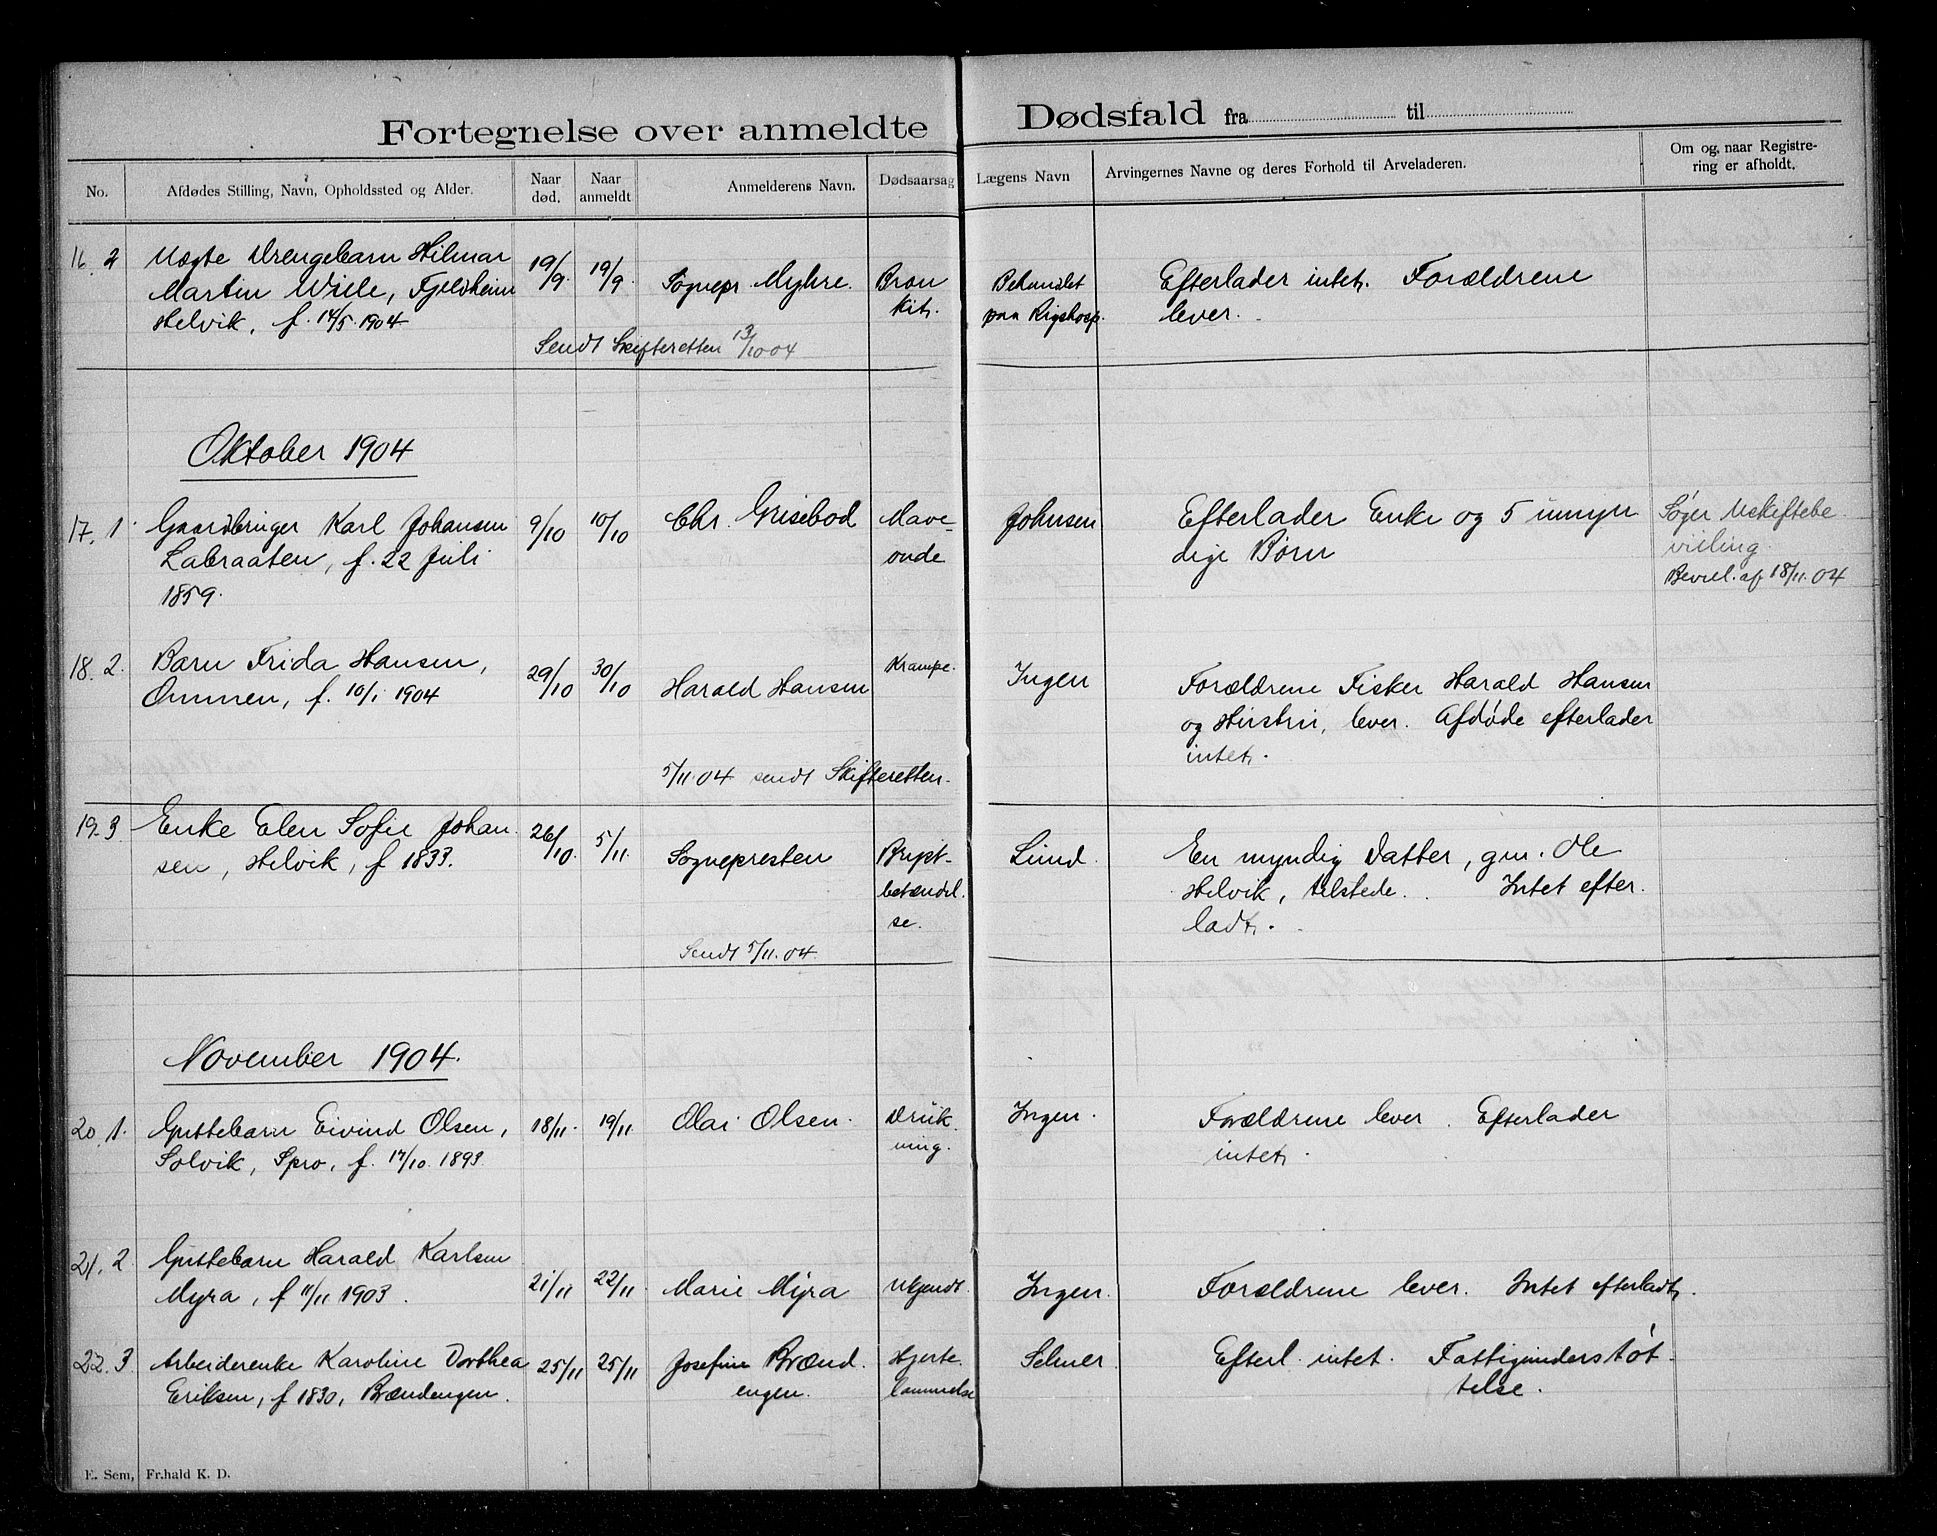 Fortegnelse over anmeldte Dødsfald fra til
No.
Afdødes Stilling, Navn, Opholdssted og Alder.
Naar død.
Naar anmeldt
Anmelderens Navn.
Dødsaarsag
Lægens Navn
Arvingernes Navne og deres Forhold til Arveladeren.
Om og, naar Registre-
ring er afholdt.
16. 2 Uægte Drengebarn Hilmar 19/9 19/9 Sognepr Myhre. Bron Behandlet Efterlader intet. Forældrene
Martin Wiele, Fjeldheim kit. paa Rigshosp. lever.
Helvik, f. 14/5 1904
Sendt Skifteretten 13/10 04
Oktober 1904
17. 1 Gaardbruger Karl Johansen 9/10 10/10 Chr. Grisebod Mave- Johnsen Efterlader Enke og 5 umyn Søger Uskiftebe
Labraaten, f. 22 Juli onde dige Børn villing.
1859. Bevil. af 18/11.04
18. 2. Barn Frida Hansen, 29/10 30/10 Harald Hansen Krampe. Ingen Forældrene Fisker Harald Hansen
Ommen, f. 10/1 1904 og Hustru, lever. Afdøde efterlader
intet.
5/11.04 sendt Skifteretten.
19. 3 Enke Elen Sofie Johan 26/10. 5/11. Sognepresten Bryst- Lund. En myndig Datter, gm. Ole
sen, Helvik, f 1833. betændel. Helvik, tilstede. Intet efter.
se. ladt.
Sendt 5/11.04
November 1904.
20. 1. Guttebarn Eivind Olsen, 18/11. 19/11 Olai Olsen. Druk. Ingen. Forældrene lever. Efterlader
Solvik, Spro, f. 17/10. 1893. ning. intet.
21. 2 Guttebarn Harald Karlsen 21/11 22/11 Marie Myra Ukjendt. Ingen. Forældrene lever. Intet efterladt.
Myra, f 11/11 1903.
22. 3 Arbeiderenke Karoline Dorthea 25/11 25/11 Josefine Brænd. Hjerte. Selmer. Efterl. intet. Fattigunderstøt
Eriksen, f 1830, Brændengen. engen. lammelse telse.
E. Sem, Fr.hald K. D.